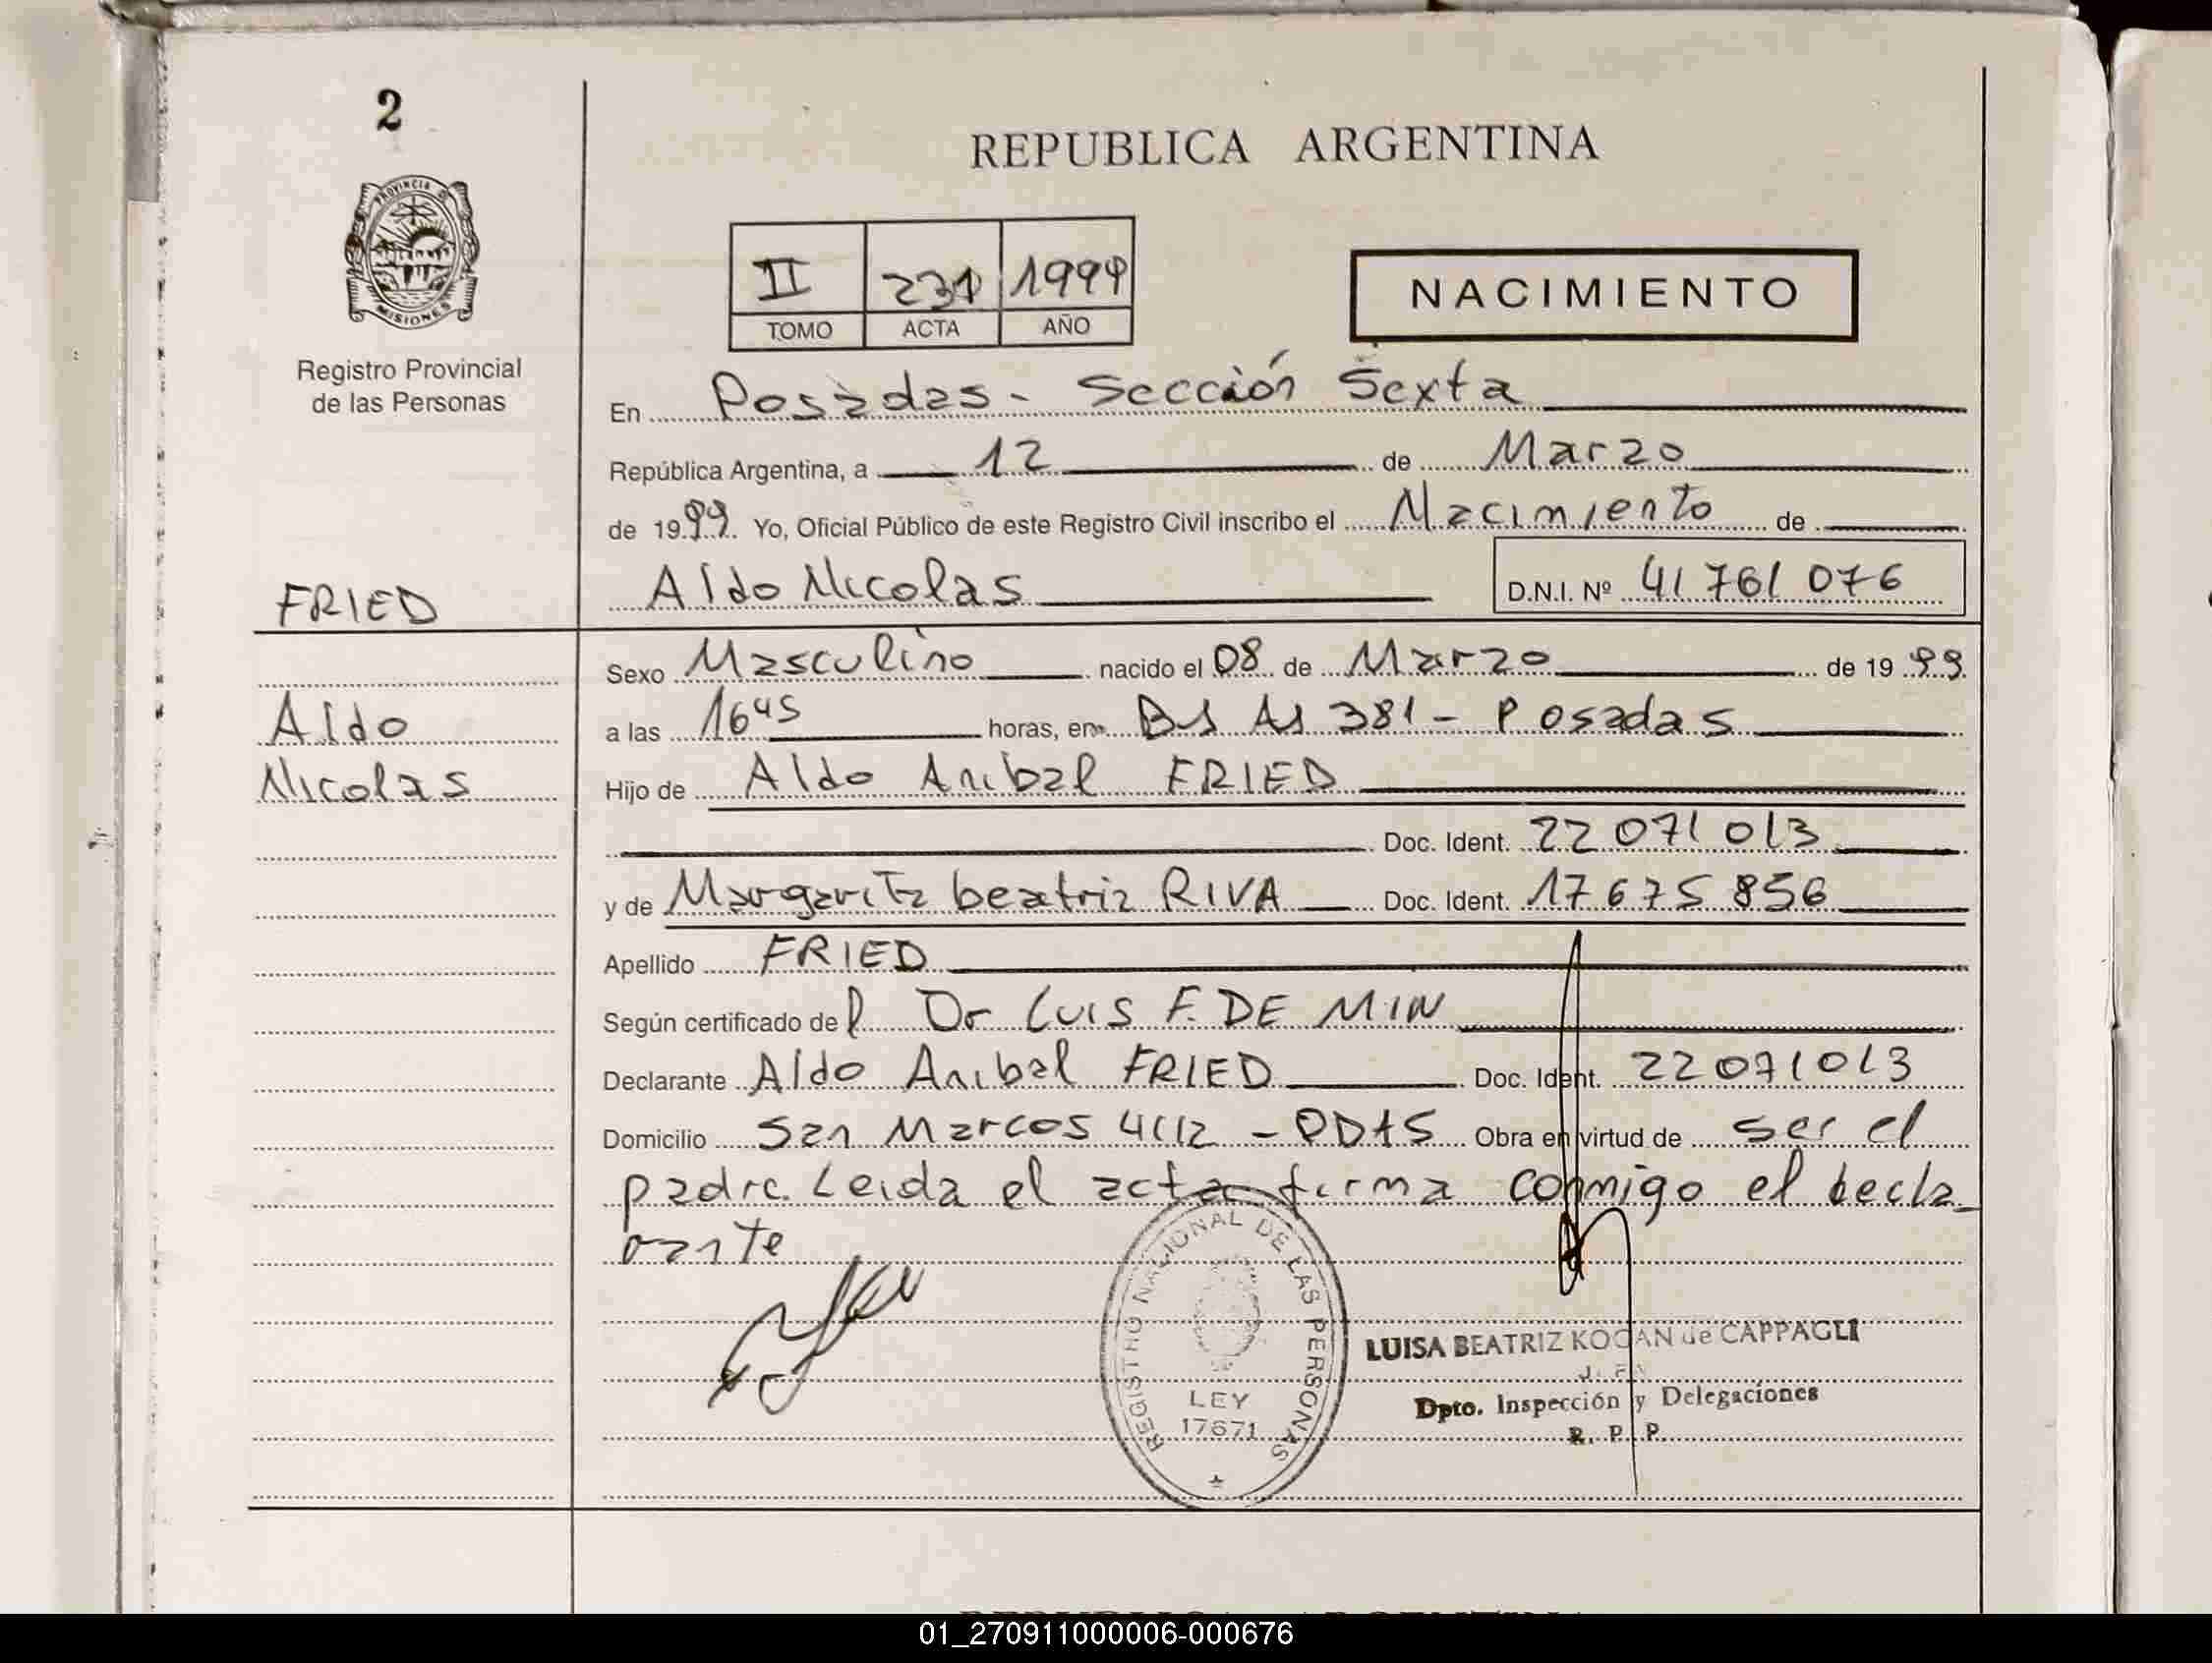 2
REPUBLICA ARGENTINA
PROVINCIA D
MISIONES
Registro Provincial
de las Personas
II 231 1999
TOMO ACTA AÑO
NACIMIENTO
En Posadas - Sección Sexta
República Argentina, a 12 de Marzo
de 1999. Yo, Oficial Público de este Registro Civil inscribo el Nacimiento de
FRIED
Aldo Nicolas D.N.I. Nº 41 761 076
Sexo Masculino nacido el 08 de Marzo de 1999
Aldo
a las 16 45 horas, en Bs As 381 - Posadas
Nicolas
Hijo de Aldo Anibal FRIED
Doc. Ident. 22 071 013
y de Margarita beatriz RIVA Doc. Ident. 17 675 856
Apellido FRIED
Según certificado del Dr LUIS F. DE MIN
Declarante Aldo Anibal FRIED Doc. Ident. 22 071 013
Domicilio San Marcos 4112 - PDAS Obra en virtud de ser el
padre. Leida el acta firma conmigo el decla_
rante
REGISTRO NACIONAL DE LAS PERSONAS
LEY
17671
LUISA BEATRIZ KOGAN de CAPPAGLI
Dpto. Inspección y Delegaciones
R. P. P.
01_270911000006-000676